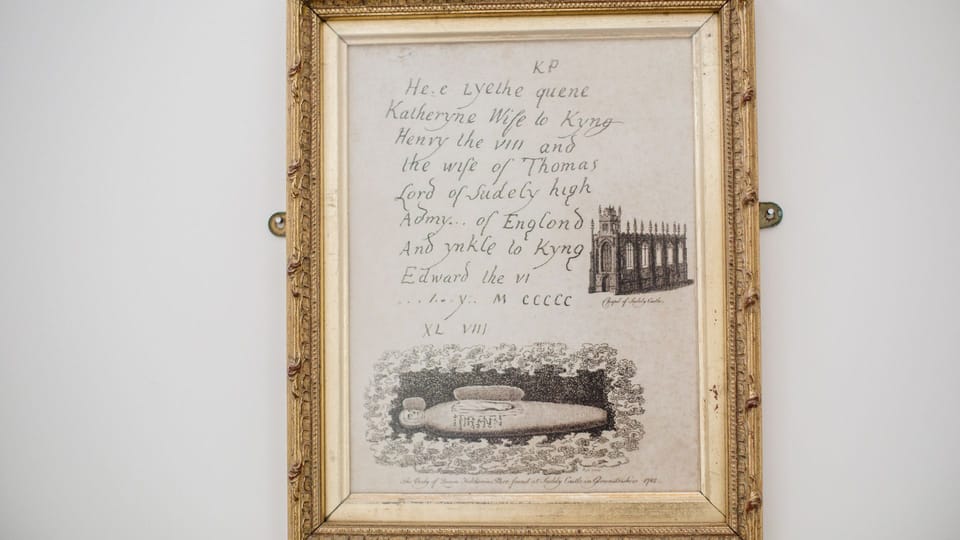 KP
He.e Lyethe quene
Katheryne Wife to Kyng
Henry the VIII and
the wife of Thomas
Lord of Sudely high
Admy... of Englond
And ynkle to Kyng
Edward the VI
...l..y.. M CCCCC
XL VIII
Chapel of Sudely Castle.
The Body of Queen Katherine Parr found at Sudely Castle in Gloucestershire 1782.